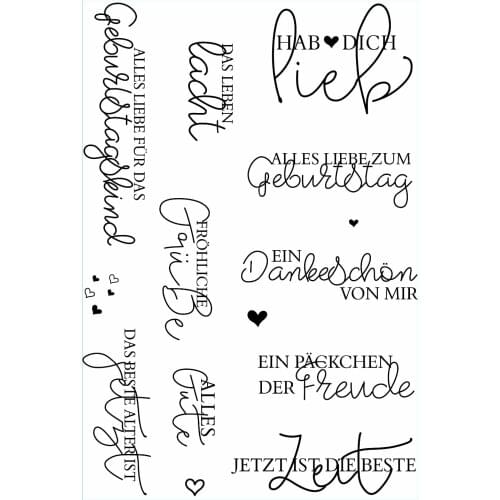 ALLES LIEBE FÜR DAS
Geburtstagskind
DAS LEBEN
lacht
HAB DICH
lieb
ALLES LIEBE ZUM
Geburtstag
FRÖHLICHE
Grüße
EIN
Dankeschön
VON MIR
DAS BESTE ALTER IST
jetzt
ALLES
Gute
EIN PÄCKCHEN
DER Freude
Zeit
JETZT IST DIE BESTE